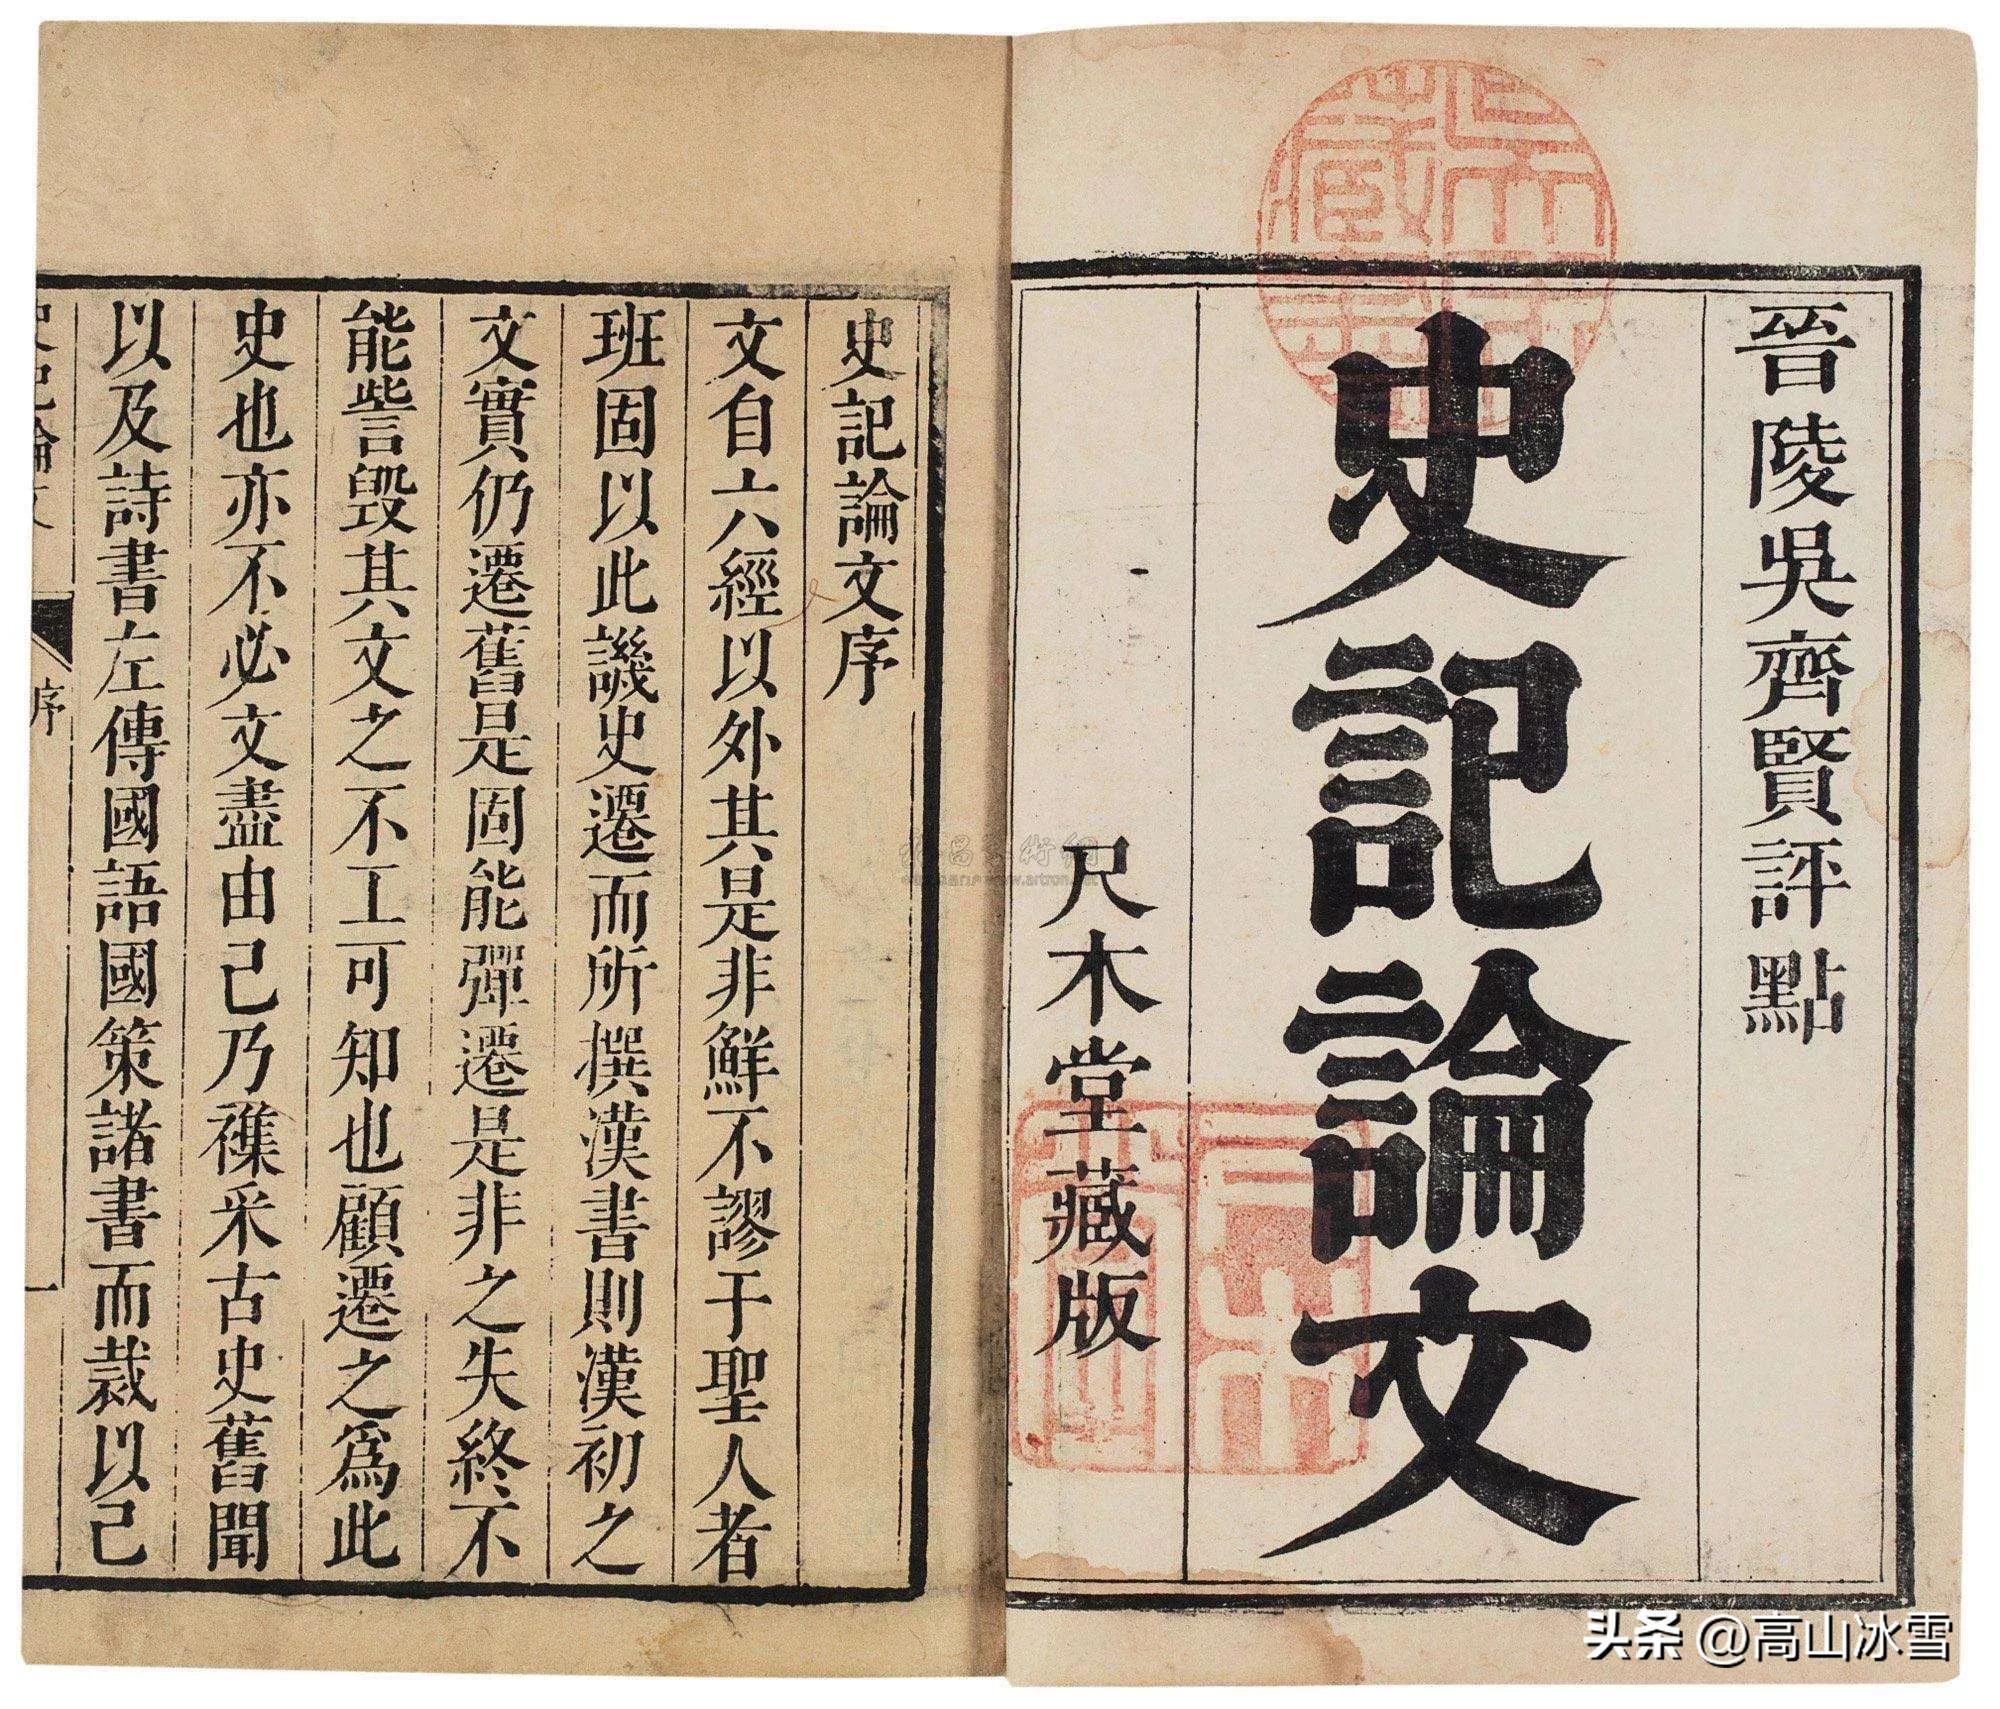 晉陵吳齊賢評點
史記論文
尺木堂藏版
史記論文序
文自六經以外其是非鮮不謬于聖人者
班固以此譏史遷而所撰漢書則漢初之
文實仍遷舊是固能彈遷是非之失終不
能訾毀其文之不工可知也顧遷之爲此
史也亦不必文盡由己乃襍采古史舊聞
以及詩書左傳國語國策諸書而裁以己
序
一
头条 @高山冰雪